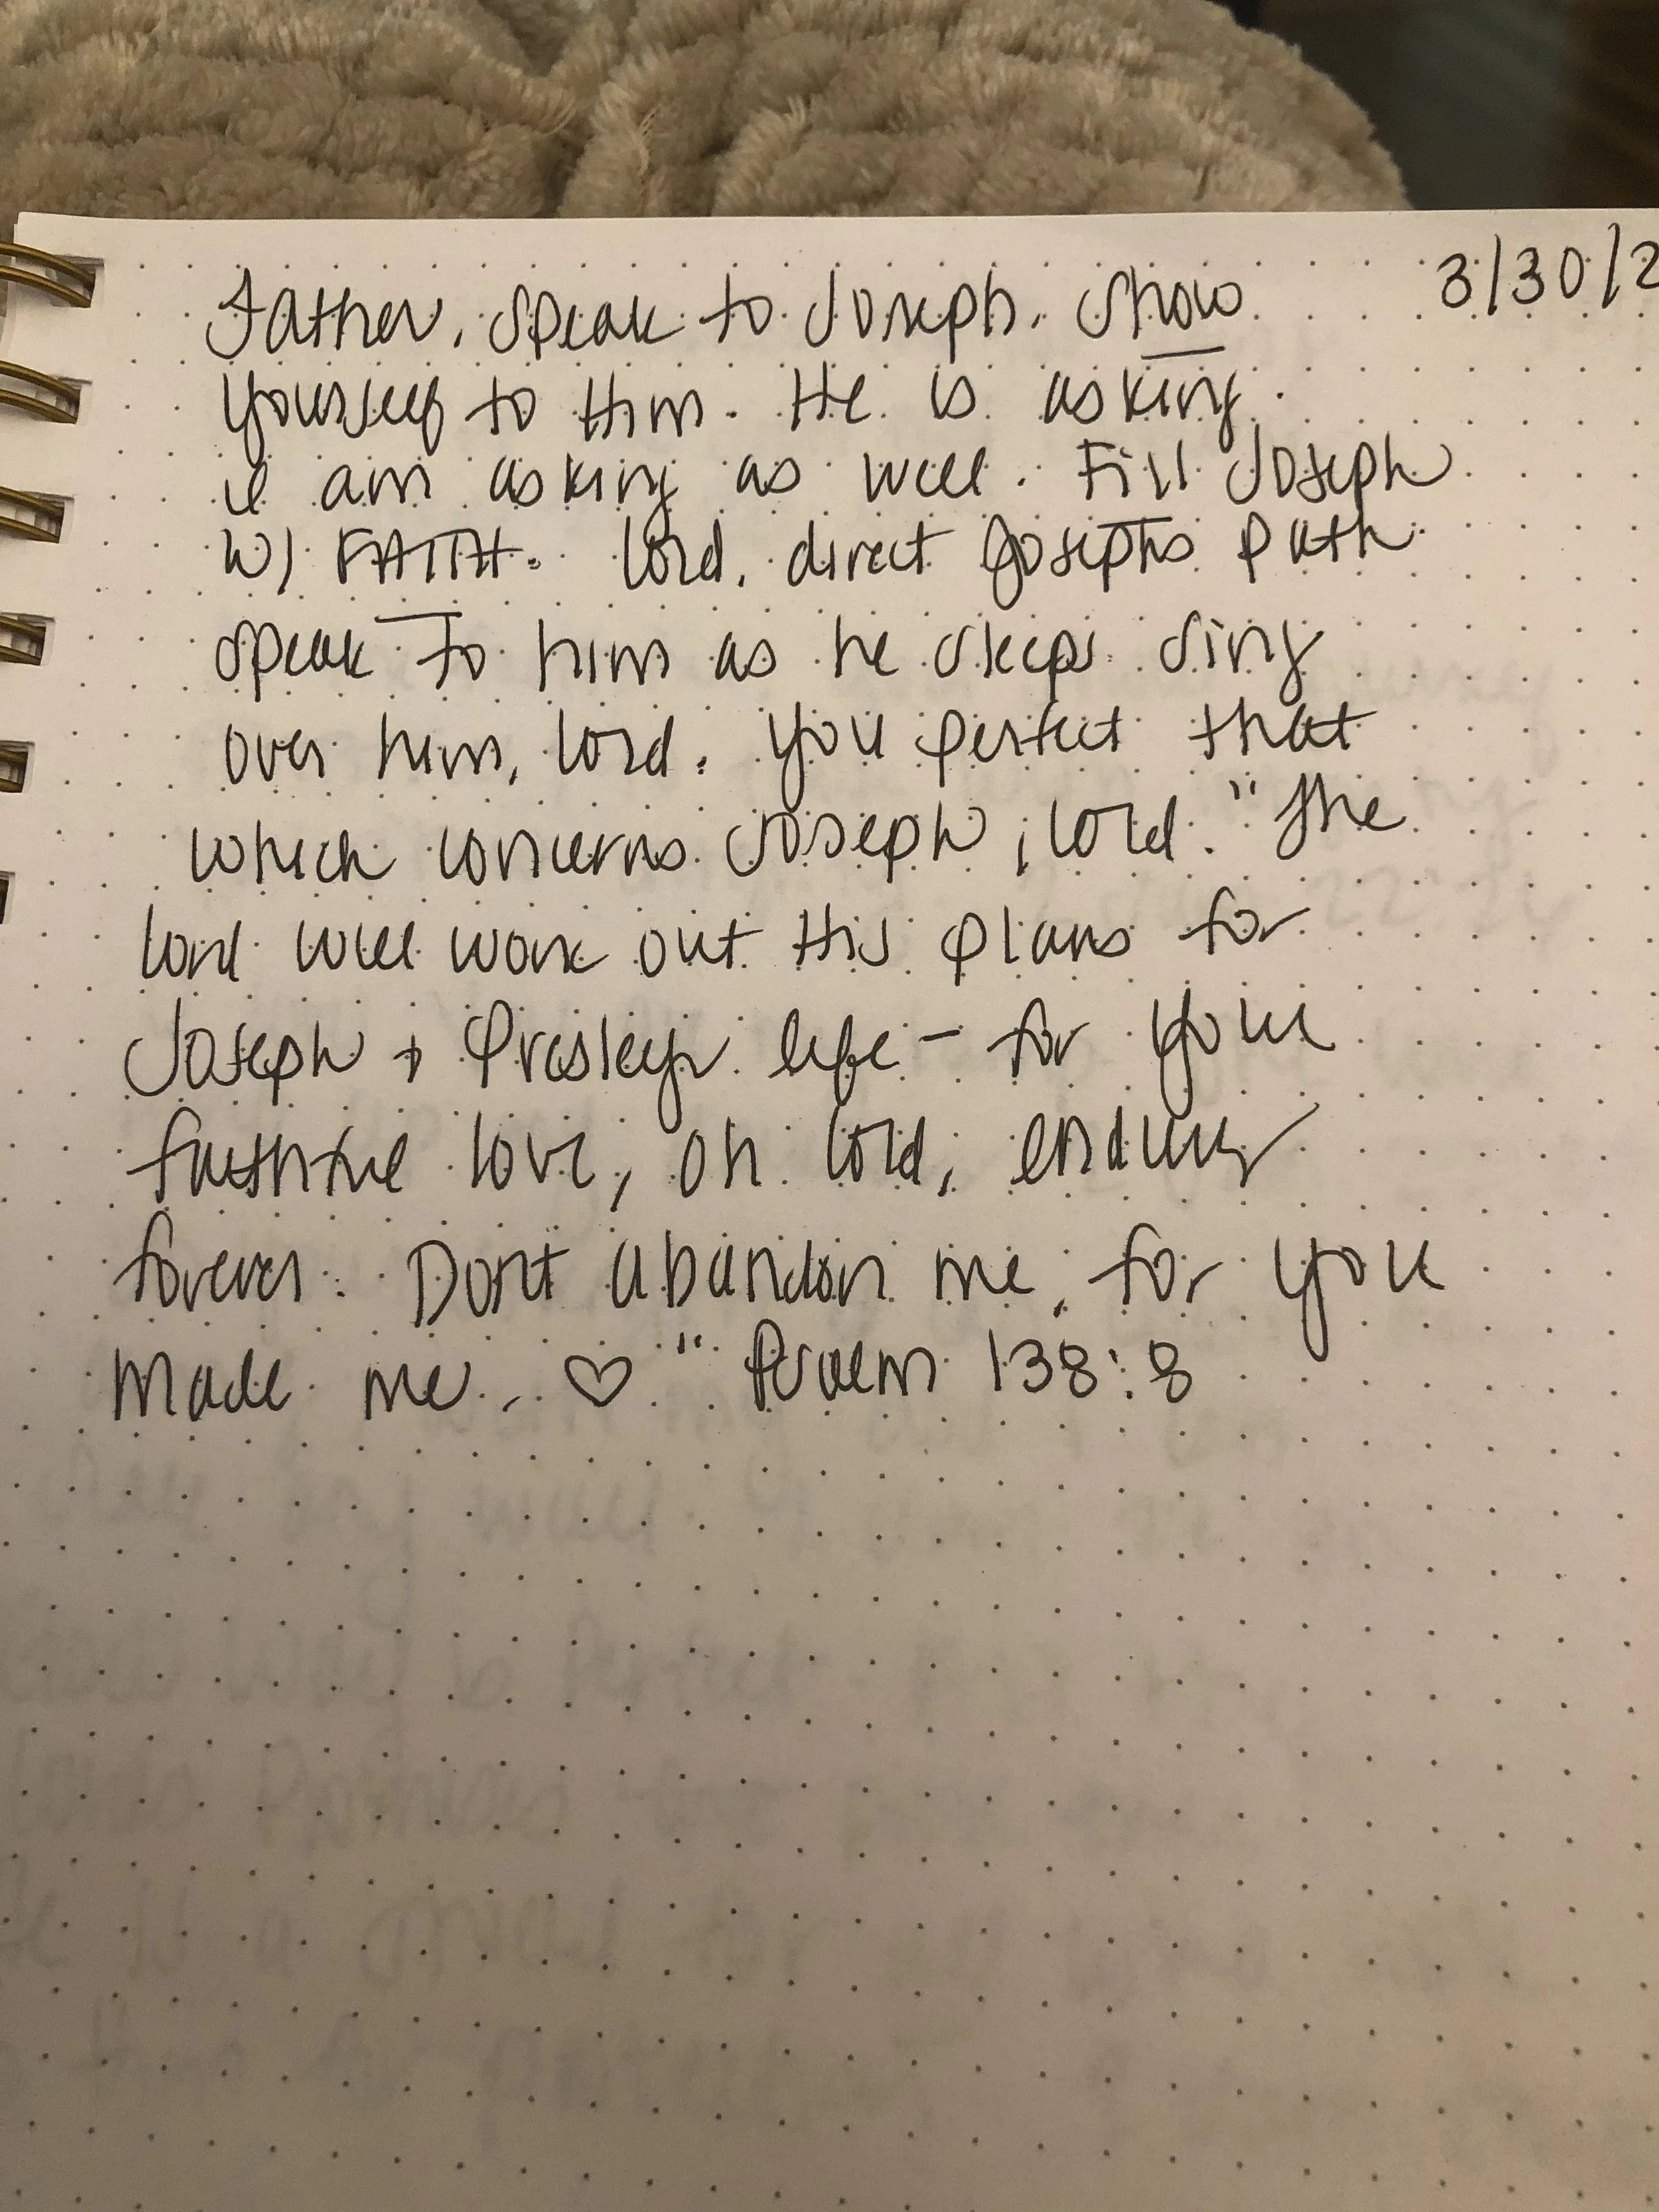 3/30/2
Father, speak to Joseph. Show
yourself to Him. He is asking.
I am asking as well. Fill Joseph
W/ FAITH. Lord, direct Josephs path
speak to him as he sleeps. Sing
over him, Lord. You perfect that
which concerns Joseph, Lord. "The
Lord will work out His plans for
Joseph + Presley life - for your
faithful love, oh Lord, endures
forever. Dont abandon me, for you
made me. ♡" 138:8